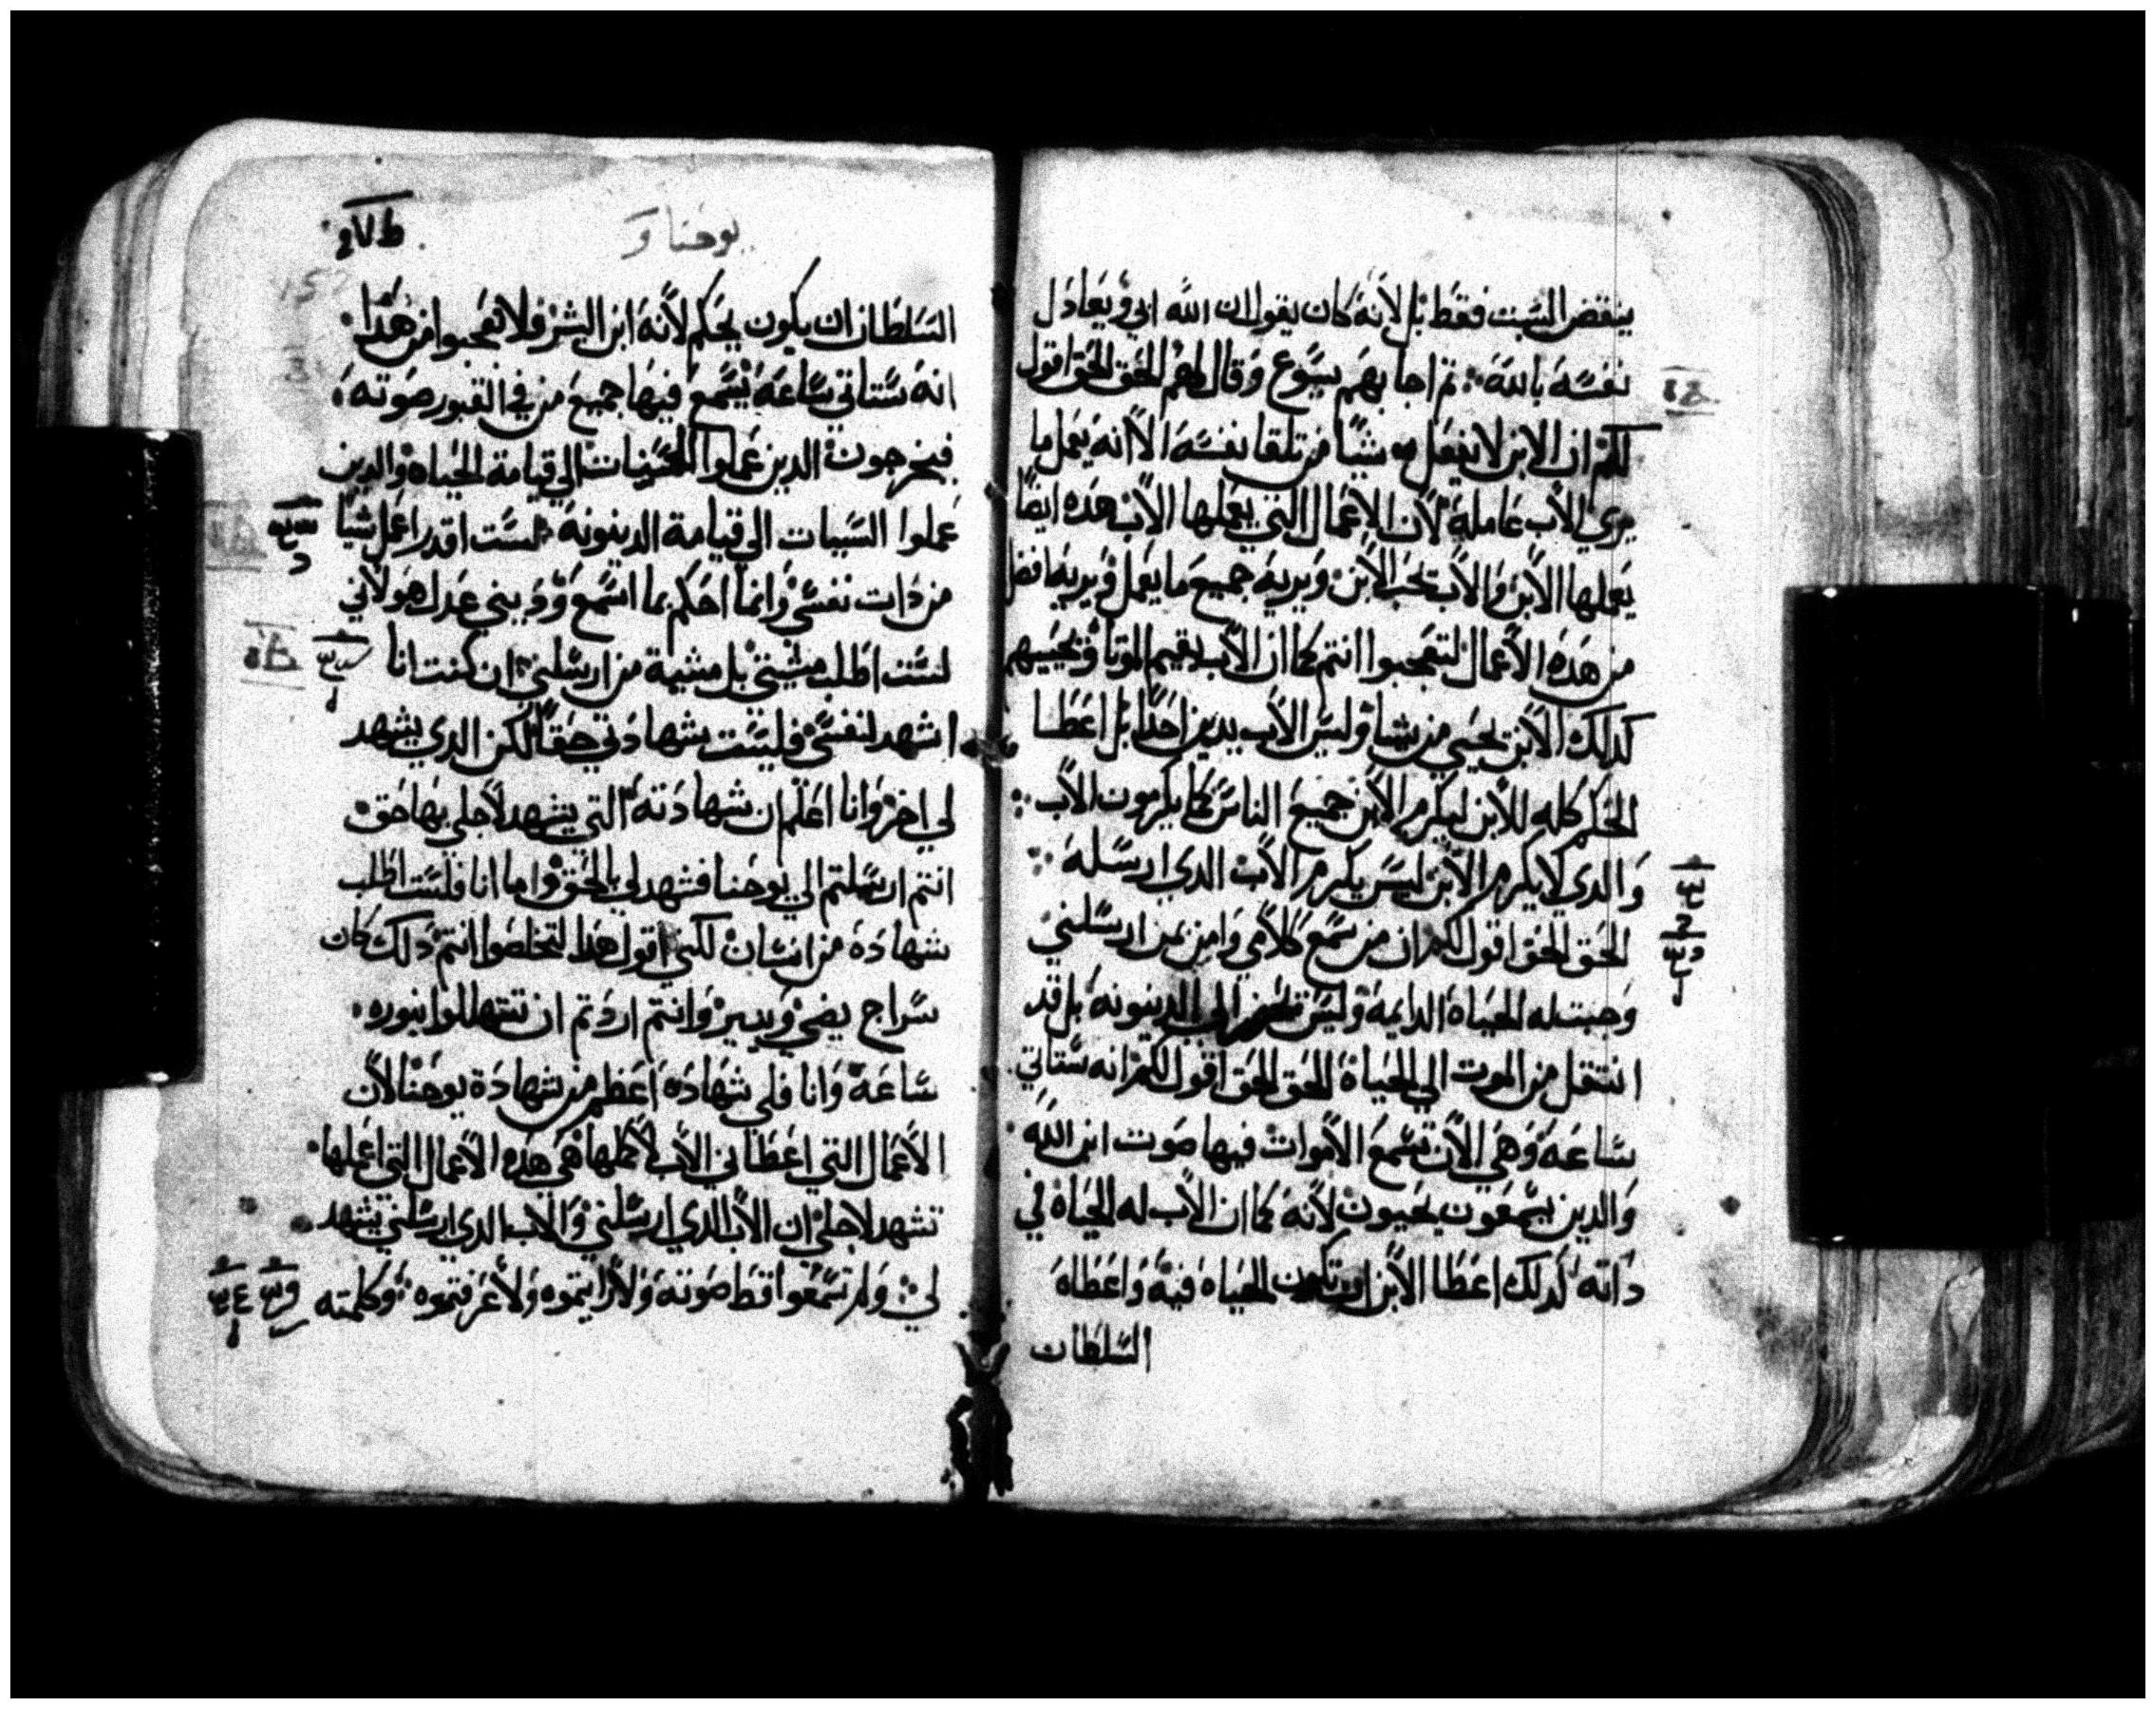 ينقض السبت فقط بل لانه كان يقول ان الله ابي ويعادل
نفسه بالله ثم اجابهم يسوع وقال لهم الحق الحق اقول
لكم ان الابن لا يفعل شيا من تلقا نفسه الا انه يعمل ما
يري الاب عامله لان الاعمال التي يعملها الاب هده ايضا
يعملها الابن والاب يحب الابن ويريه جميع ما يعمل ويريه افضل
من هده الاعمال لتعجبوا انتم كما ان الاب يقيم الموتا ويحييهم
كدلك الابن يحيي من يشا وليس الاب يدين احدا بل اعطا
الحكم كله للابن ليكرم الابن جميع الناس كما يكرمون الاب
والدي لا يكرم الابن ليس يكرم الاب الدي ارسله
الحق الحق اقول لكم ان من سمع كلامي وامن بمن ارسلني
وجبت له الحياة الدايمة وليس الي الدينونه بل قد
انتقل من الموت الي الحياة الحق الحق اقول لكم انه ستاتي
ساعه وهي الان تسمع الاموات فيها صوت ابن الله
والدين يسمعون يحيون لانه كما ان الاب له الحياة في
داته كدلك اعطا الابن ان تكون الحياه فيه واعطاه
السلطان
يوحنا
السلطان ان يكون يحكم لانه ابن البشر فلا تعجبوا من هدا
انه ستاتي ساعة يسمع فيها جميع من في القبور صوته
فيخرجون الدين عملوا الحسنات الي قيامة الحياه والدين
عملوا السيات الي قيامة الدينونه لست اقدر اعمل شيا
من دات نفسي وانما احكم بما اسمع وديني عدل هو لاني
لست اطلب مشيتي بل مشية من ارسلني ان كنت انا
اشهد لنفسي فليست شهادتي حقا لكن الدي يشهد
لي اخر وانا اعلم ان شهادته التي يشهد لاجلي بها حق
انتم ارسلتم الي يوحنا فشهد لي بالحق واما انا فلست اطلب
شهادة من انسان لكني اقول هدا لتخلصوا انتم دلك كان
سراج يضي ويسير وانتم اردتم ان تتهللوا بنوره
ساعة وانا فلي شهاده اعظم من شهادة يوحنا لان
الاعمال التي اعطاني الاب لاكملها هي هده الاعمال التي اعملها
تشهد لاجلي ان الاب الدي ارسلني والاب الدي ارسلني يشهد
لي ولم تسمعوا قط صوته ولا رايتموه ولا عرفتموه وكلمته